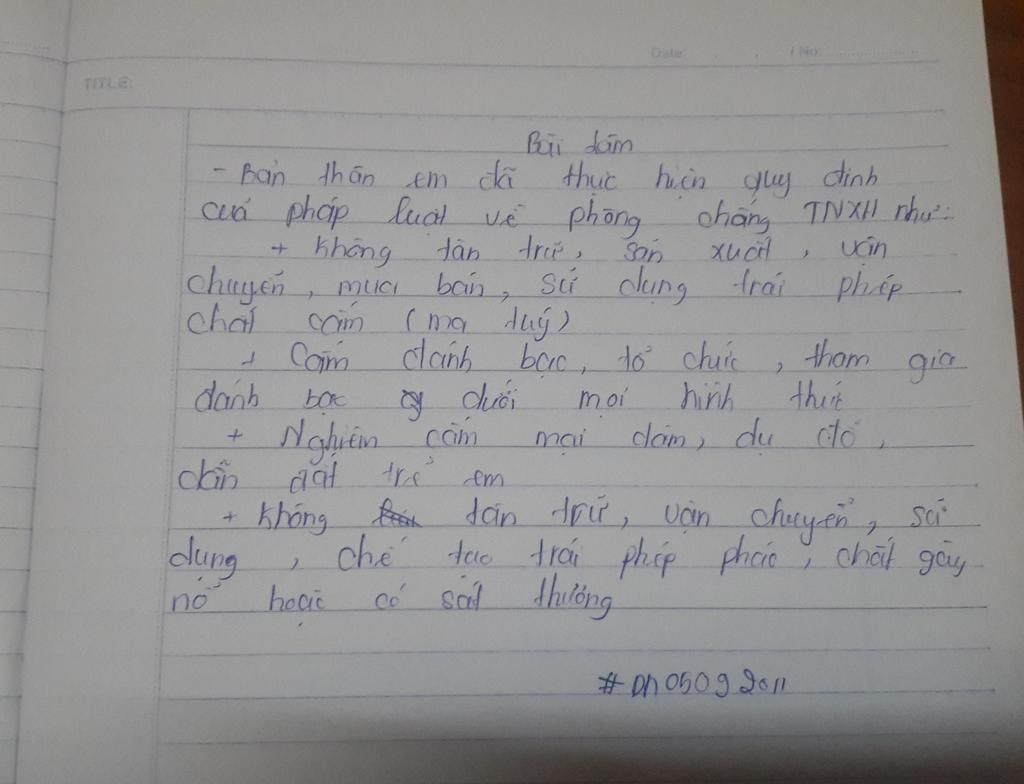 Date: . . / No:
TITLE:
Bài làm
- Bản thân em đã thực hiện quy định
cuả pháp luật về phòng chống TNXH như:
+ Không tàn trữ, sản xuất, vận
chuyển, mua bán, sử dụng trái phép
chất cấm (ma tuý)
+ Cấm đánh bạc, tổ chức, tham gia
đánh bạc dưới mọi hình thức
+ Nghiêm cấm mại dâm, dụ dỗ,
dẫn dắt trẻ em
+ Không tàn trữ, vận chuyển, sử
dụng, chế tạo trái phép pháo, chất gây
nổ hoặc có sát thương
#DN05092011